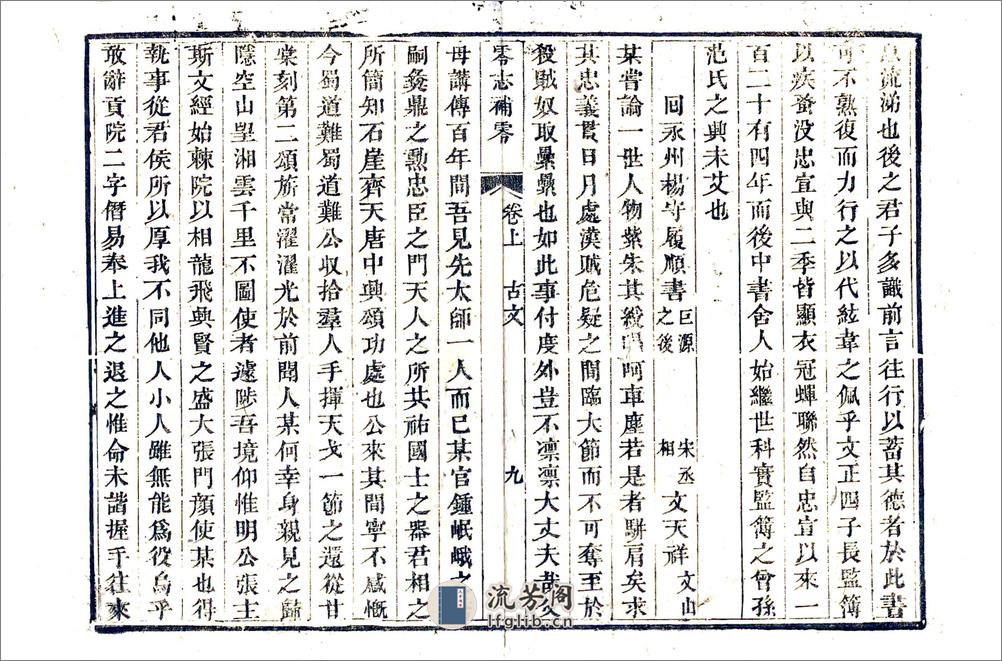 流涕也後之君子多識前言往行以蓄其德者於此書
可不熟復而力行之以代絃韋之佩乎文正四子長監簿
以疾蚤没忠宣與二季皆顯衣冠蟬聯然自忠宣以來一
百二十有四年而後中書舍人始繼世科實監簿之曾孫
范氏之興未艾也
回永州楊守履順書 巨源之後 宋丞相 文天祥 文山
某嘗論一世人物紫朱其綬唱呵車塵若是者駢肩矣求
其忠義貫日月處漢賊危疑之間臨大節而不可奪至於
殺賊奴取纍纍也如此事付度外豈不凛凛大丈夫哉
零志補零 卷上 古文 九
母講傳百年間吾見先太師一人而已某官鍾岷峨之
嗣彝鼎之勲忠臣之門天人之所共祐國士之器君相之
所簡知石崖齊天唐中興頌功處也公來其間寧不感慨
今蜀道難蜀道難公収拾羣人手揮天戈一節之還從甘
棠刻第二頌旂常濯濯光於前聞人某何幸身親見之歸
隱空山望湘雲千里不圖使者遽陟吾境仰惟明公張主
斯文經始棘院以相龍飛興賢之盛大張門顔使某也得
執事從君侯所以厚我不同他人小人雖無能爲役烏乎
敢辭貢院二字僭易奉上進之退之惟命未諧握手往來
流芳阁
lfglib.cn